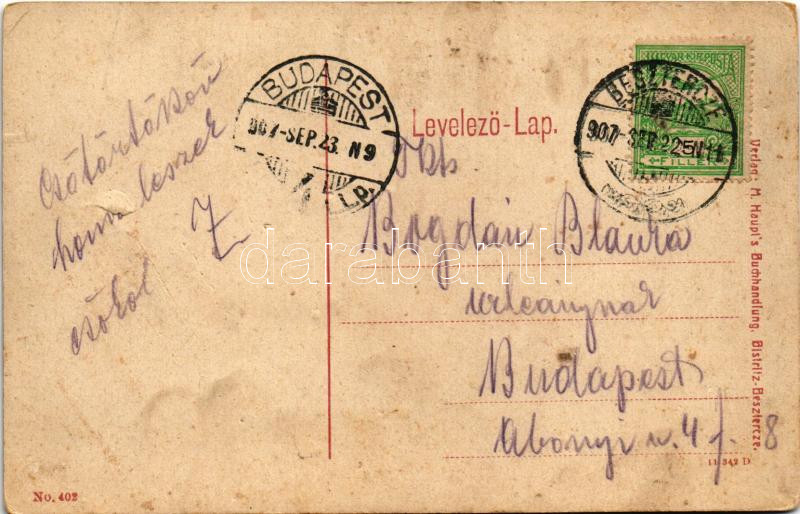 Csötörtökön
hom leszek
csókol
Z
BUDAPEST
907-SEP.23. N9
Levelező-Lap.
BESZTERCZE
907-SEP.22
MAGYAR KIR. POSTA
FILLÉR
Bogdán Blanka
urleánynak
Budapest
Abonyi u. 4 f. 8
Verlag: M. Haupt's Buchhandlung, Bistritz-Besztercze.
11 342 D
No. 402
darabanth